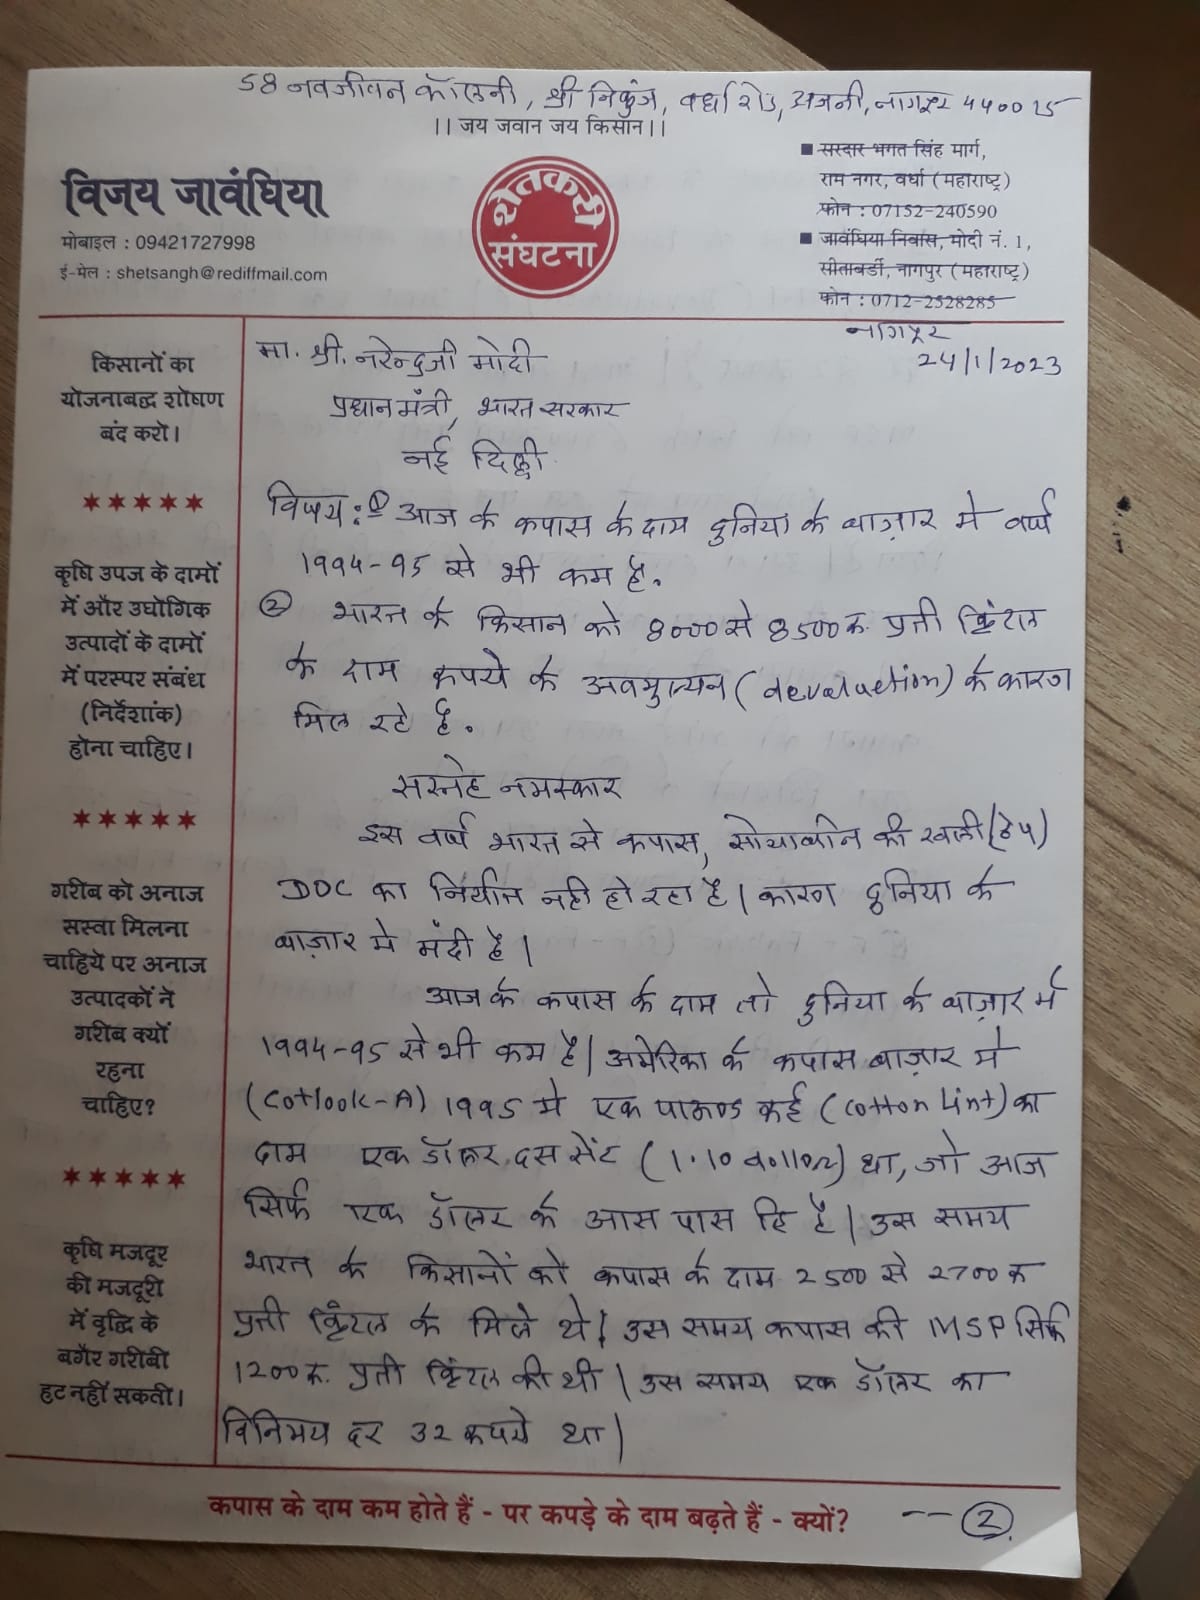 58 नवजीवन कॉलनी, श्री निकुंज, वर्धा रोड, अजनी, नागपूर 440025
।। जय जवान जय किसान।।
विजय जावंघिया
मोबाइल : 09421727998
ई-मेल : shetsangh@rediffmail.com
शेतकरी
संघटना
■ सरदार भगत सिंह मार्ग,
राम नगर, वर्धा (महाराष्ट्र)
फोन : 07152-240590
■ जावंघिया निवास, मोदी नं. 1,
सीताबर्डी, नागपुर (महाराष्ट्र)
फोन : 0712-2528285
नागपूर
24/1/2023
किसानों का
योजनाबद्ध शोषण
बंद करो।
★★★★★
कृषि उपज के दामों
में और उघोगिक
उत्पादों के दामों
में परस्पर संबंध
(निर्देशांक)
होना चाहिए।
★★★★★
गरीब को अनाज
सस्वा मिलना
चाहिये पर अनाज
उत्पादकों ने
गरीब क्यों
रहना
चाहिए?
★★★★★
कृषि मजदूर
की मजदूरी
में वृद्धि के
बगैर गरीबी
हट नहीं सकती।
मा. श्री. नरेन्द्रजी मोदी
प्रधान मंत्री, भारत सरकार
नई दिल्ली
विषय: ① आज के कपास के दाम दुनिया के बाज़ार मे वर्ष
1994-95 से भी कम है.
② भारत के किसान को 8000 से 8500 रु. प्रती क्विंटल
के दाम रुपये के अवमुल्यन (devaluation) के कारण
मिल रहे है.
सस्नेह नमस्कार
इस वर्ष भारत से कपास, सोयाबीन की खली (ढेप)
DOC का निर्यात नही हो रहा है। कारण दुनिया के
बाज़ार मे मंदी है।
आज के कपास के दाम तो दुनिया के बाज़ार में
1994-95 से भी कम है। अमेरिका के कपास बाज़ार मे
(Cotlook-A) 1995 मे एक पाऊण्ड रुई (Cotton Lint) का
दाम एक डॉलर दस सेंट (1.10 dollar) था, जो आज
सिर्फ एक डॉलर के आस पास हि है। उस समय
भारत के किसानों को कपास के दाम 2500 से 2700 रु
प्रती क्विंटल के मिले थे। उस समय कपास की MSP सिर्फ
1200 रु. प्रती क्विंटल की थी। उस समय एक डॉलर का
विनिमय दर 32 रुपये था।
कपास के दाम कम होते हैं - पर कपड़े के दाम बढ़ते हैं - क्यों?
-- ②